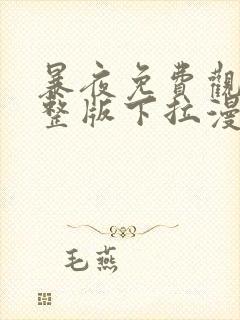 暴夜免費觀
整版下拉漫
毛燕